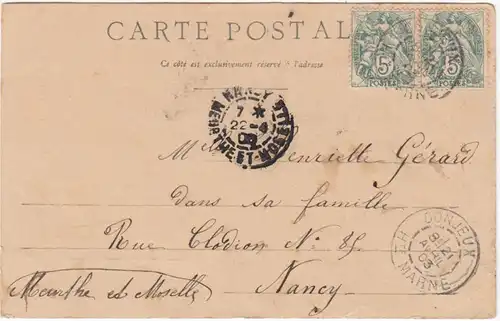 CARTE POSTALE
Ce côté est exclusivement réservé à l'adresse
5c 5c
POSTES POSTES
NANCY
7 *
22-4
03
MEURTHE-ET-MOSELLE
Melle Henriette Gérard
dans sa famille
Rue Clodion N: 85
Nancy
Meurthe et Moselle
DONJEUX
21
AVRIL
03
Hte MARNE